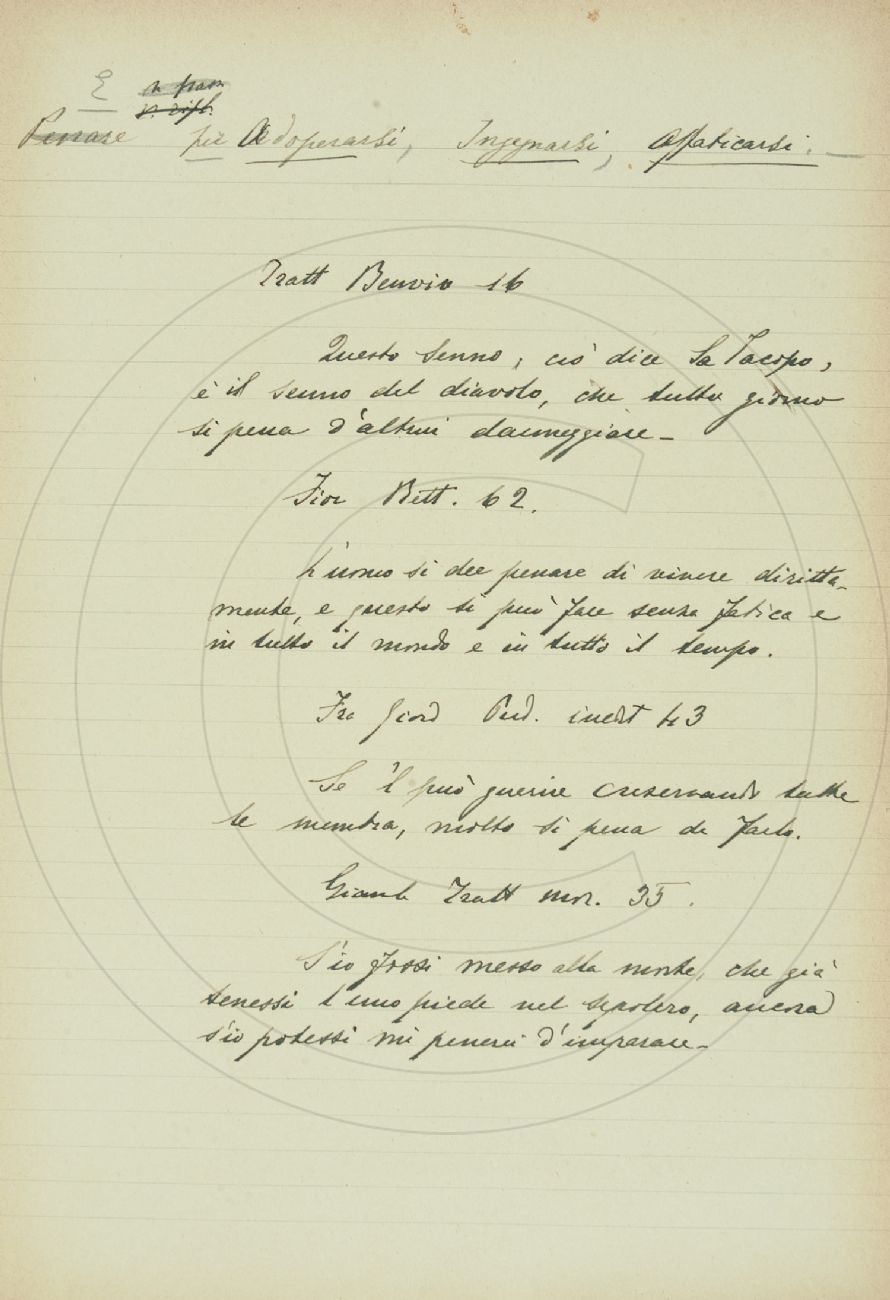 E n. pass.
n. rifl.
Penare per Adoperarsi, Ingegnarsi, Affaticarsi. —
Tratt Benviv 16
Questo senno, ciò dice Sa Jacopo,
è il senno del diavolo, che tutto giorno
si pena d'altrui danneggiare -
Fior Rett. 62.
L'uomo si dee penare di vivere diritta-
mente, e questo si può fare senza fatica e
in tutto il mondo e in tutto il tempo.
Fra Giord Pred. inedit 43
Se 'l può guerire conservando tutte
le membra, molto si pena di farlo.
Giamb Tratt mor. 35.
S'io fossi messo alla morte, che già
tenessi l'uno piede nel sepolcro, ancora
s'io potessi mi penerei d'imparare -